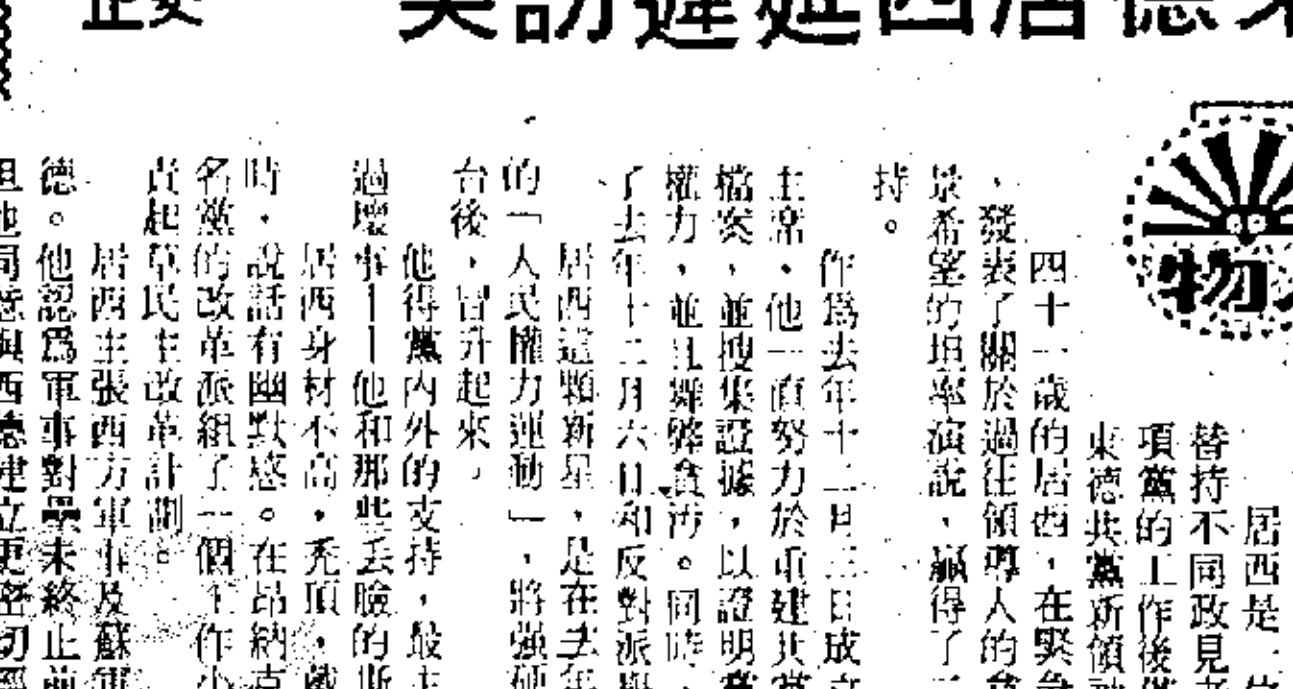 訪遲延西居德
物
居西是一
替持不同政見
項黨的工作後
東德共黨新領
四十一歲的居西，在緊
，發表了關於過往領導人的
景希望的坦率演說，贏得了
持。
作爲去年十二月三日成立
主席，他一直努力於重建共黨
檔案，並搜集證據，以證明黨
權力，並且舞弊貪污。同時，
了去年十二月六日和反對派
居西這顆新星，是在去年
的「人民權力運動」，將強硬
台後，冒升起來。
他得黨內外的支持，最主
過壞事——他和那些丟臉的斯
居西身材不高，禿頂，戴
時，說話有幽默感。在昂納克
名黨的改革派組了一個工作小
責起草民主改革計劃。
居西主張西方軍事及蘇軍
德。他認爲軍事對壘未終止前
但他同意與西德建立更密切經